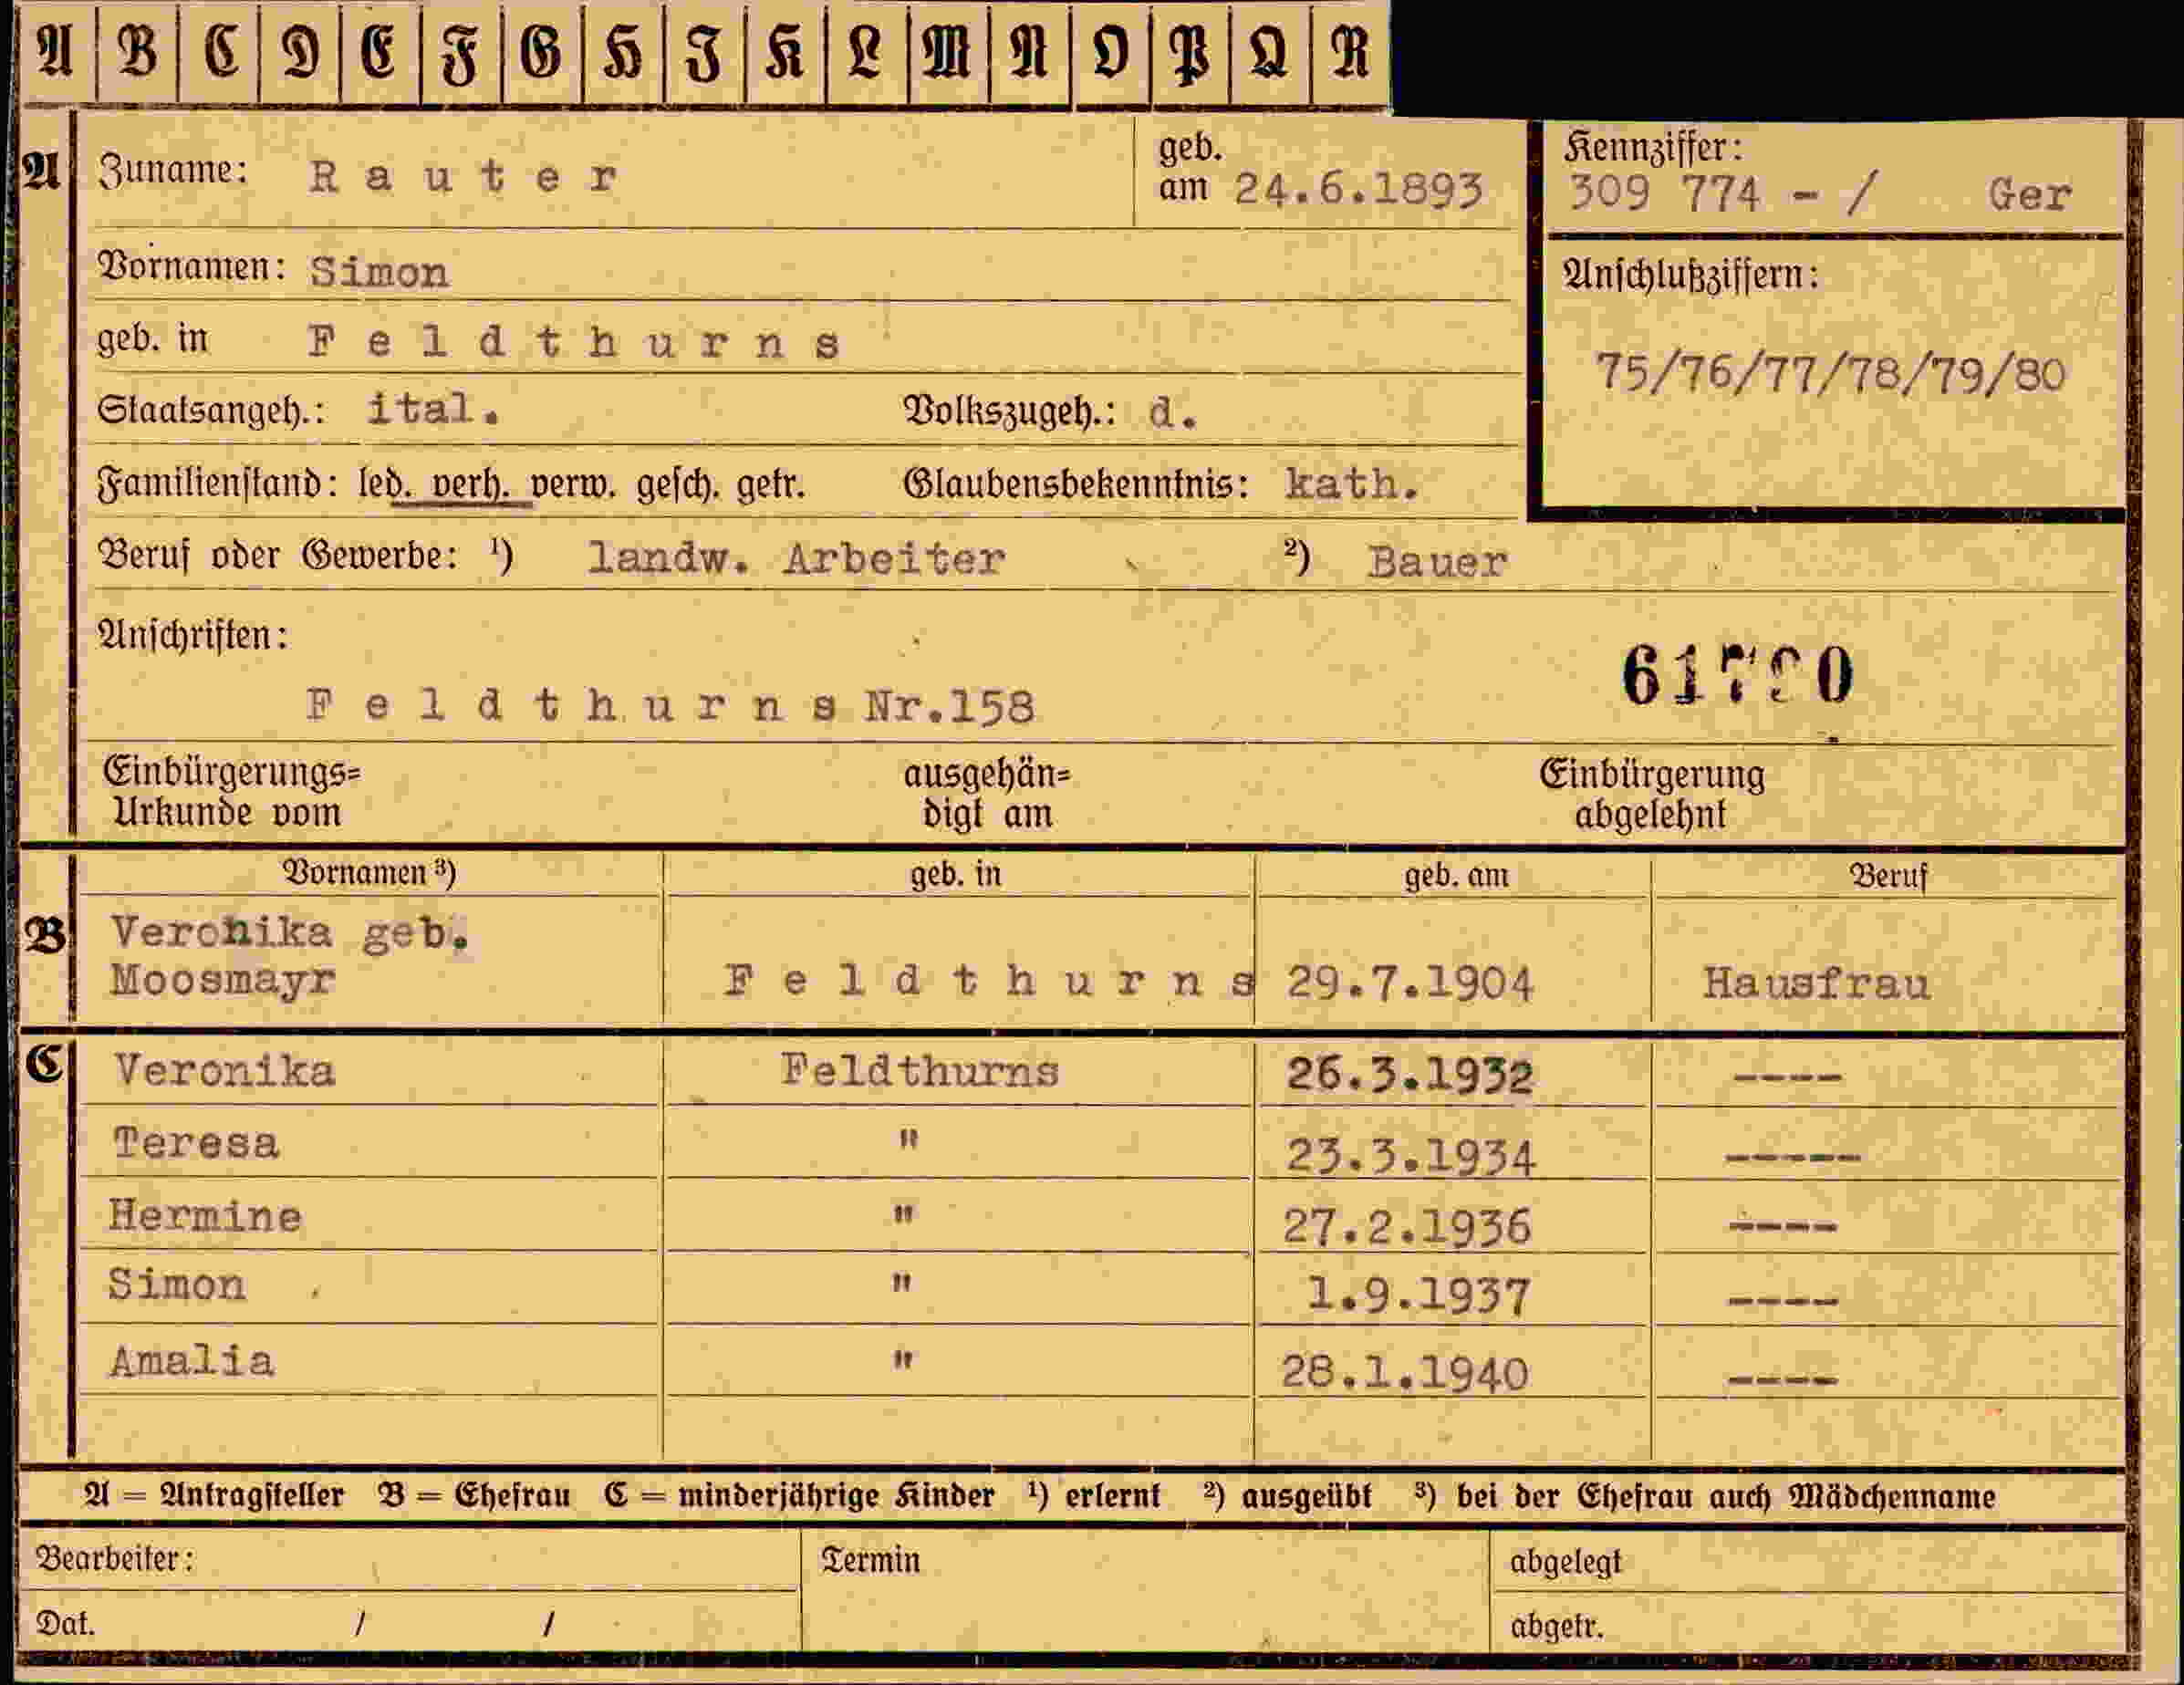 A B C D E F G H I K L M N O P Q R
A Zuname: Rauter geb. am 24.6.1893
Kennziffer:
309 774 - / Ger
Vornamen: Simon
Anschlußziffern:
geb. in Feldthurns
75/76/77/78/79/80
Staatsangeh.: ital. Volkszugeh.: d.
Familienstand: led. verh. verw. gesch. getr. Glaubensbekenntnis: kath.
Beruf oder Gewerbe: ¹) landw. Arbeiter ²) Bauer
Anschriften:
Feldthurns Nr.158
Einbürgerungs= ausgehän= Einbürgerung
Urkunde vom digt am abgelehnt
Vornamen ³) geb. in geb. am Beruf
B Veronika geb.
Moosmayr Feldthurns 29.7.1904 Hausfrau
C Veronika Feldthurns 26.3.1932 ----
Teresa " 23.3.1934 -----
Hermine " 27.2.1936 ----
Simon " 1.9.1937 ----
Amalia " 28.1.1940 ----
A = Antragsteller B = Ehefrau C = minderjährige Kinder ¹) erlernt ²) ausgeübt ³) bei der Ehefrau auch Mädchenname
Bearbeiter: Termin abgelegt
Dat. / / abgetr.